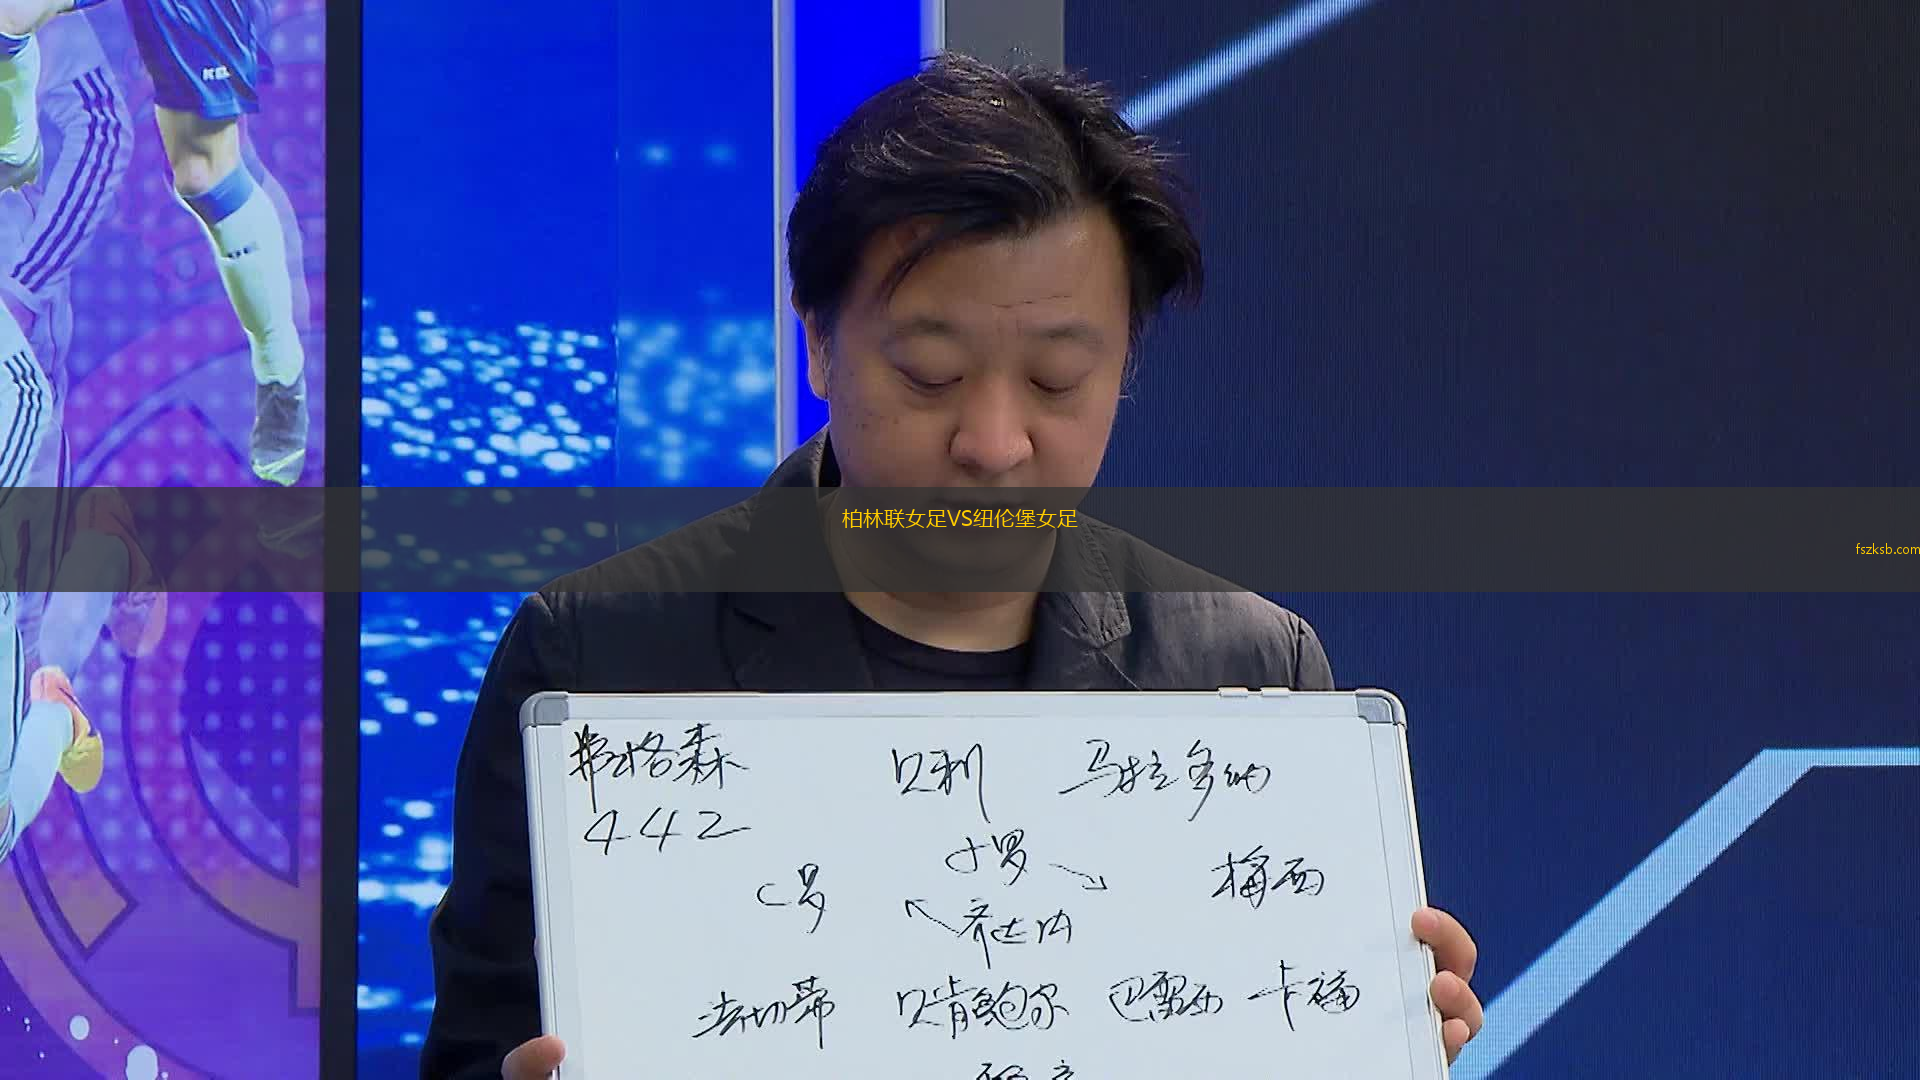 柏林联女足VS纽伦堡女足
fszksb.com
弗格森 贝利 马拉多纳
442
小罗
C罗 梅西
齐达内
法切蒂 贝肯鲍尔 巴雷西 卡福